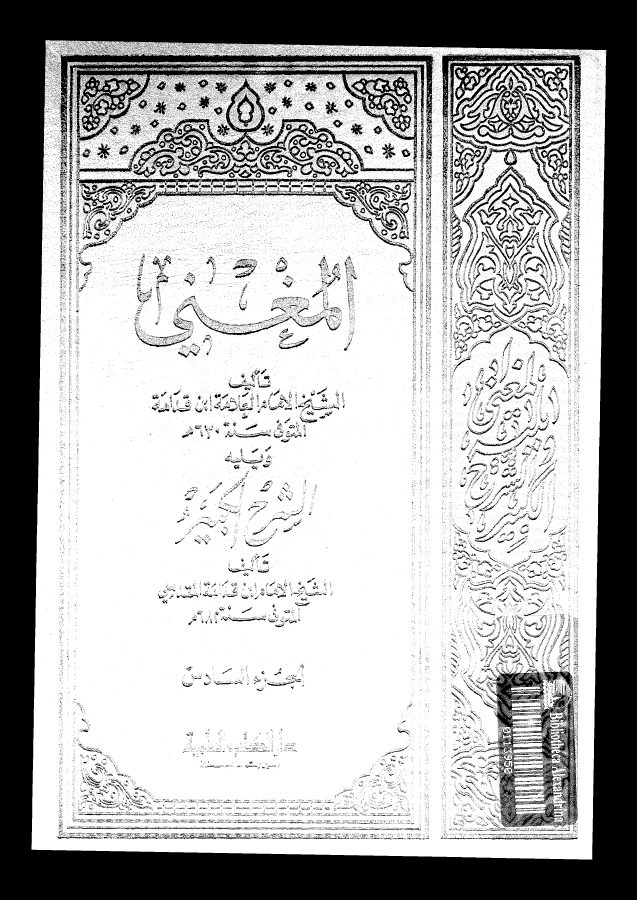 المغني
تأليف
الشيخ الامام العلامة ابن قدامة
المتوفى سنة ٦٣٠هـ
ويليه
الشرح الكبير
تأليف
الشيخ الامام ابن قدامة المقدسي
المتوفى سنة ٦٨٢هـ
الجزء السادس
دار الكتب العلمية
المغني
ويليه
الشرح
الكبير
Bibliotheca Alexandrina